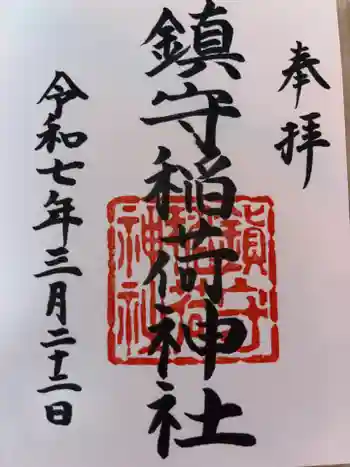 奉拝
鎮守稲荷神社
鎮守稲荷神社
令和七年三月二十二日